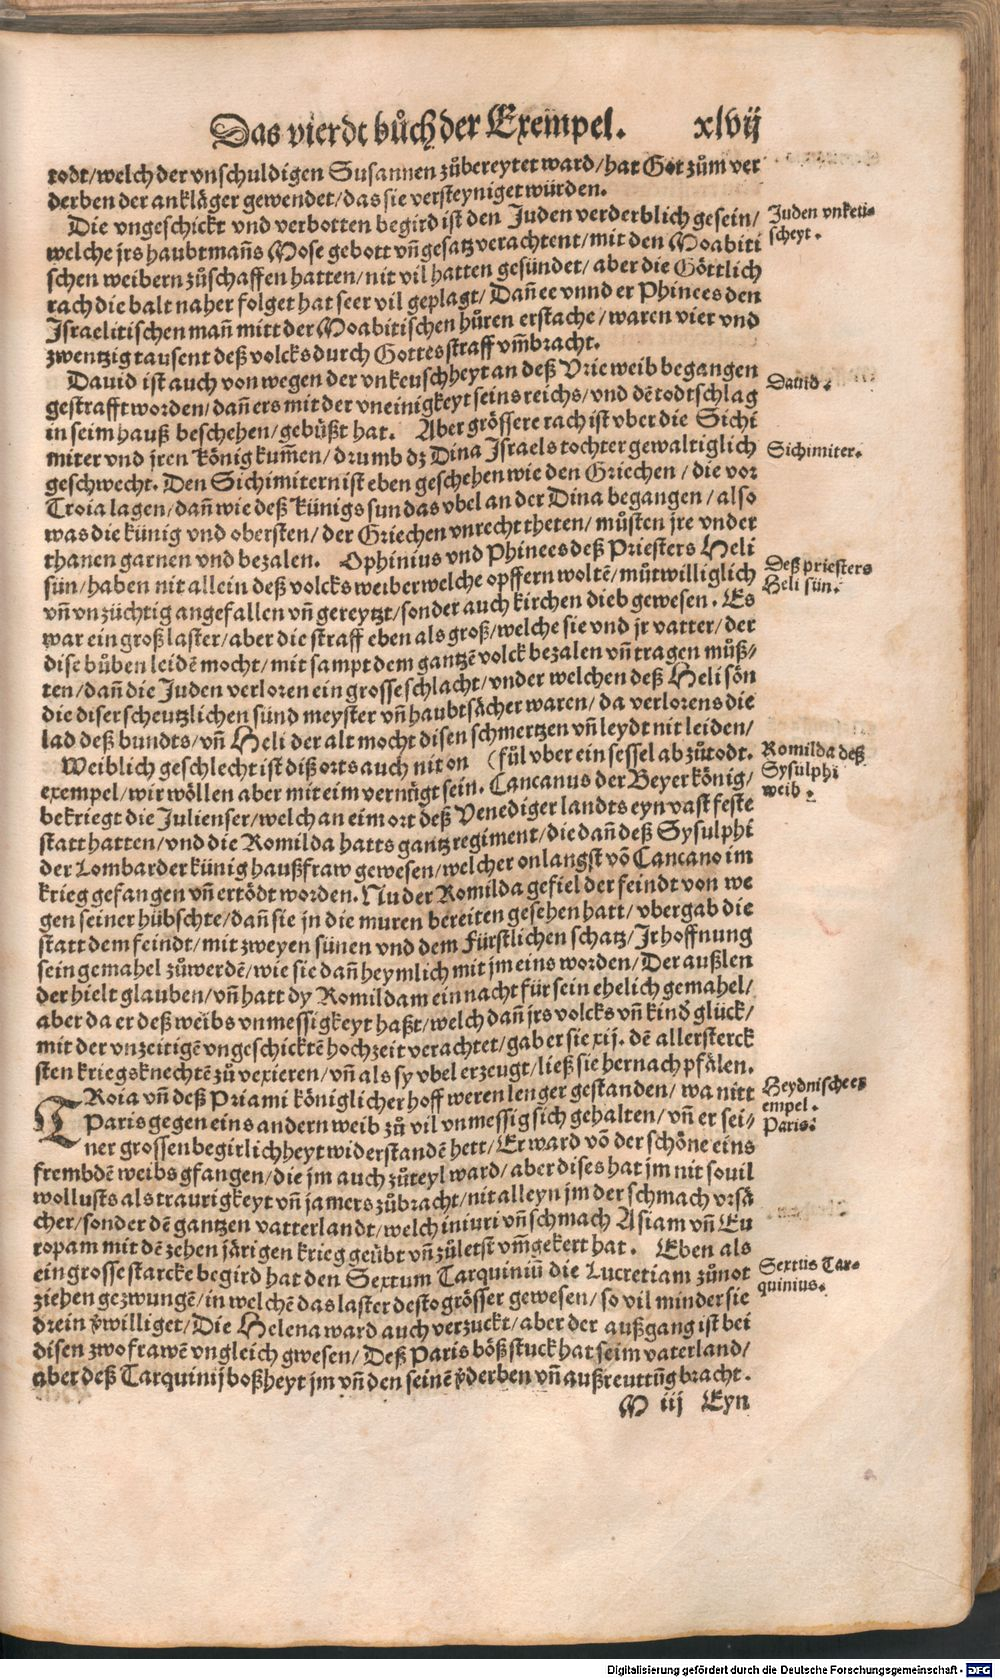 Das vierdt bůch der Exempel. xlvij
todt/welch der vnschuldigen Susannen zůbereytet ward/hat Got zům ver
derben der ankläger gewendet/das sie versteyniget würden.
Die vngeschickt vnd verbotten begird ist den Juden verderblich gesein/
welche jrs haubtmañs Mose gebott vñ gesatz verachtent/mit den Moabiti
schen weibern zůschaffen hatten/nit vil hatten gesündet/aber die Göttlich
rach die balt naher folget hat seer vil geplagt/Dañ ee vnnd er Phinees den
Israelitischen mañ mitt der Moabitischen hůren erstache/waren vier vnd
zwentzig tausent deß volcks durch Gottes straff vm̃bracht.
Juden vnkeu-
scheyt.
Dauid ist auch von wegen der vnkeuschheyt an deß Vrie weib begangen
gestrafft worden/dañ ers mit der vneinigkeyt seins reichs/vnd dē todtschlag
in seim hauß beschehen/gebüßt hat. Aber grössere rach ist vber die Sichi
miter vnd jren König kum̃en/drumb dz Dina Israels tochter gewaltiglich
geschwecht. Den Sichimitern ist eben geschehen wie den Griechen/die vor
Troia lagen/dañ wie deß Künigs sun das vbel an der Dina begangen/also
was die künig vnd obersten/der Griechen vnrecht theten/můsten jre vnder
thanen garnen vnd bezalen. Ophinius vnd Phinees deß Priesters Heli
sün/haben nit allein deß volcks weiber welche opffern woltē/můtwilliglich
vñ vnzüchtig angefallen vñ gereytzt/sonder auch kirchen dieb gewesen. Es
war ein groß laster/aber die straff eben als groß/welche sie vnd jr vatter/der
dise bůben leidē mocht/mit sampt dem gantzē volck bezalen vñ tragen můß/
ten/dañ die Juden verloren ein grosse schlacht/vnder welchen deß Heli sön
die diser scheutzlichen sünd meyster vñ haubtsächer waren/da verlorens die
lad deß bundts/vñ Heli der alt mocht disen schmertzen vñ leydt nit leiden/
Dauid.
Sichimiter.
Deß priesters
Heli sün.
Weiblich geschlecht ist diß orts auch nit on (fül vber ein sessel ab zůtodt.
exempel/wir wöllen aber mit eim vernügt sein. Cancanus der Beyer könig/
bekriegt die Julienser/welch an eim ort deß Venediger landts eyn vast feste
statt hatten/vnd die Romilda hatts gantz regiment/die dañ deß Sysulphi
der Lombarder künig haußfraw gewesen/welcher onlangst võ Cancano im
krieg gefangen vñ ertödt worden. Nu der Romilda gefiel der feindt von we
gen seiner hübschte/dañ sie jn die muren bereiten gesehen hatt/vbergab die
statt dem feindt/mit zweyen sünen vnd dem Fürstlichen schatz/Jr hoffnung
sein gemahel zůwerdē/wie sie dañ heymlich mit jm eins worden/Der außlen
der hielt glauben/vñ hatt dy Romildam ein nacht für sein ehelich gemahel/
aber da er deß weibs vnmessigkeyt haßt/welch dañ jrs volcks vñ kind̕ glück/
mit der vnzeitigē vngeschicktē hochzeit verachtet/gab er sie xij. dē allersterck
sten kriegsknechtē zů vexieren/vñ als sy vbel erzeugt/ließ sie hernach pfälen.
Romilda deß
Sysulphi
weib.
TRoia vñ deß Priami königlicher hoff weren lenger gestanden/wa nitt
Paris gegen eins andern weib zů vil vnmessig sich gehalten/vñ er sei-
ner grossen begirlichheyt widerstandē hett/Er ward võ der schöne eins
frembdē weibs gfangen/die jm auch zůteyl ward/aber dises hat jm nit souil
wollusts als traurigkeyt vñ jamers zůbracht/nit alleyn jm der schmach vrsä
cher/sonder dē gantzen vatterlandt/welch iniuri vñ schmach Asiam vñ Eu
ropam mit dē zehen järigen krieg geübt vñ zůletst vm̃gekert hat. Eben als
ein grosse starcke begird hat den Sextum Tarquiniũ die Lucretiam zůnot
ziehen gezwungē/in welchē das laster desto grösser gewesen/so vil minder sie
drein v̕williget/Die Helena ward auch verzuckt/aber der außgang ist bei
disen zwo frawē vngleich gwesen/Deß Paris bößstuck hat seim vaterland/
aber deß Tarquinij boßheyt jm vñ den seinē v̕derben vñ außreuttũg bracht.
Heydnische ex
empel.
Paris.
Sextus Tar-
quinius.
M iij Eyn
Digitalisierung gefördert durch die Deutsche Forschungsgemeinschaft - DFG